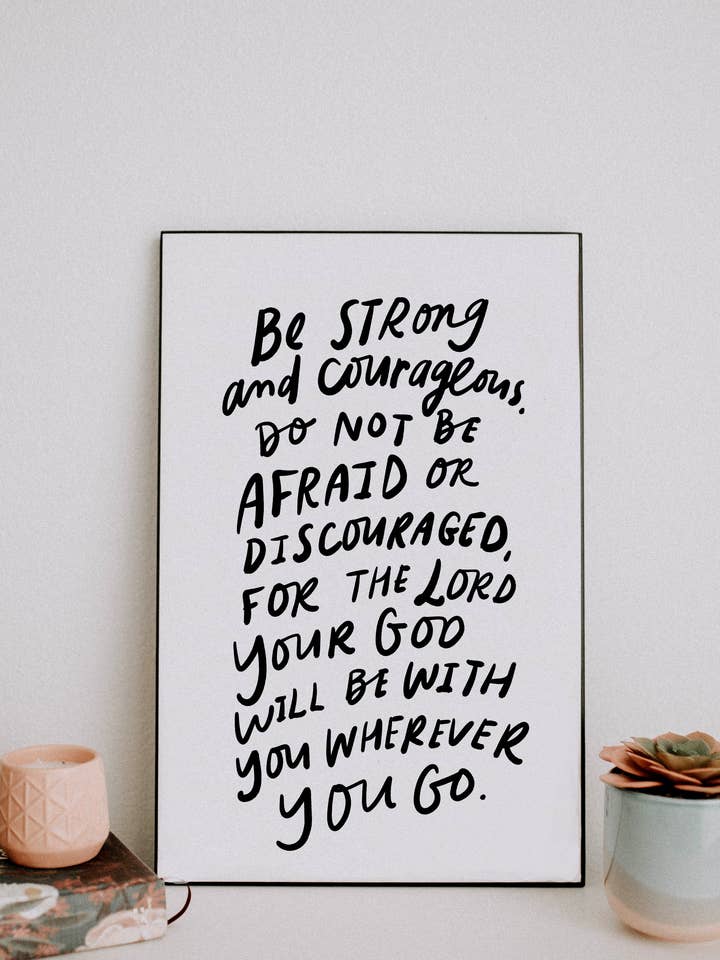 Be STRong
and courageous.
DO NOT BE
AFRAID OR
DISCOURAGED,
FOR THE LORD
YOUR GOD
WILL BE WITH
YOU WHEREVER
YOU GO.